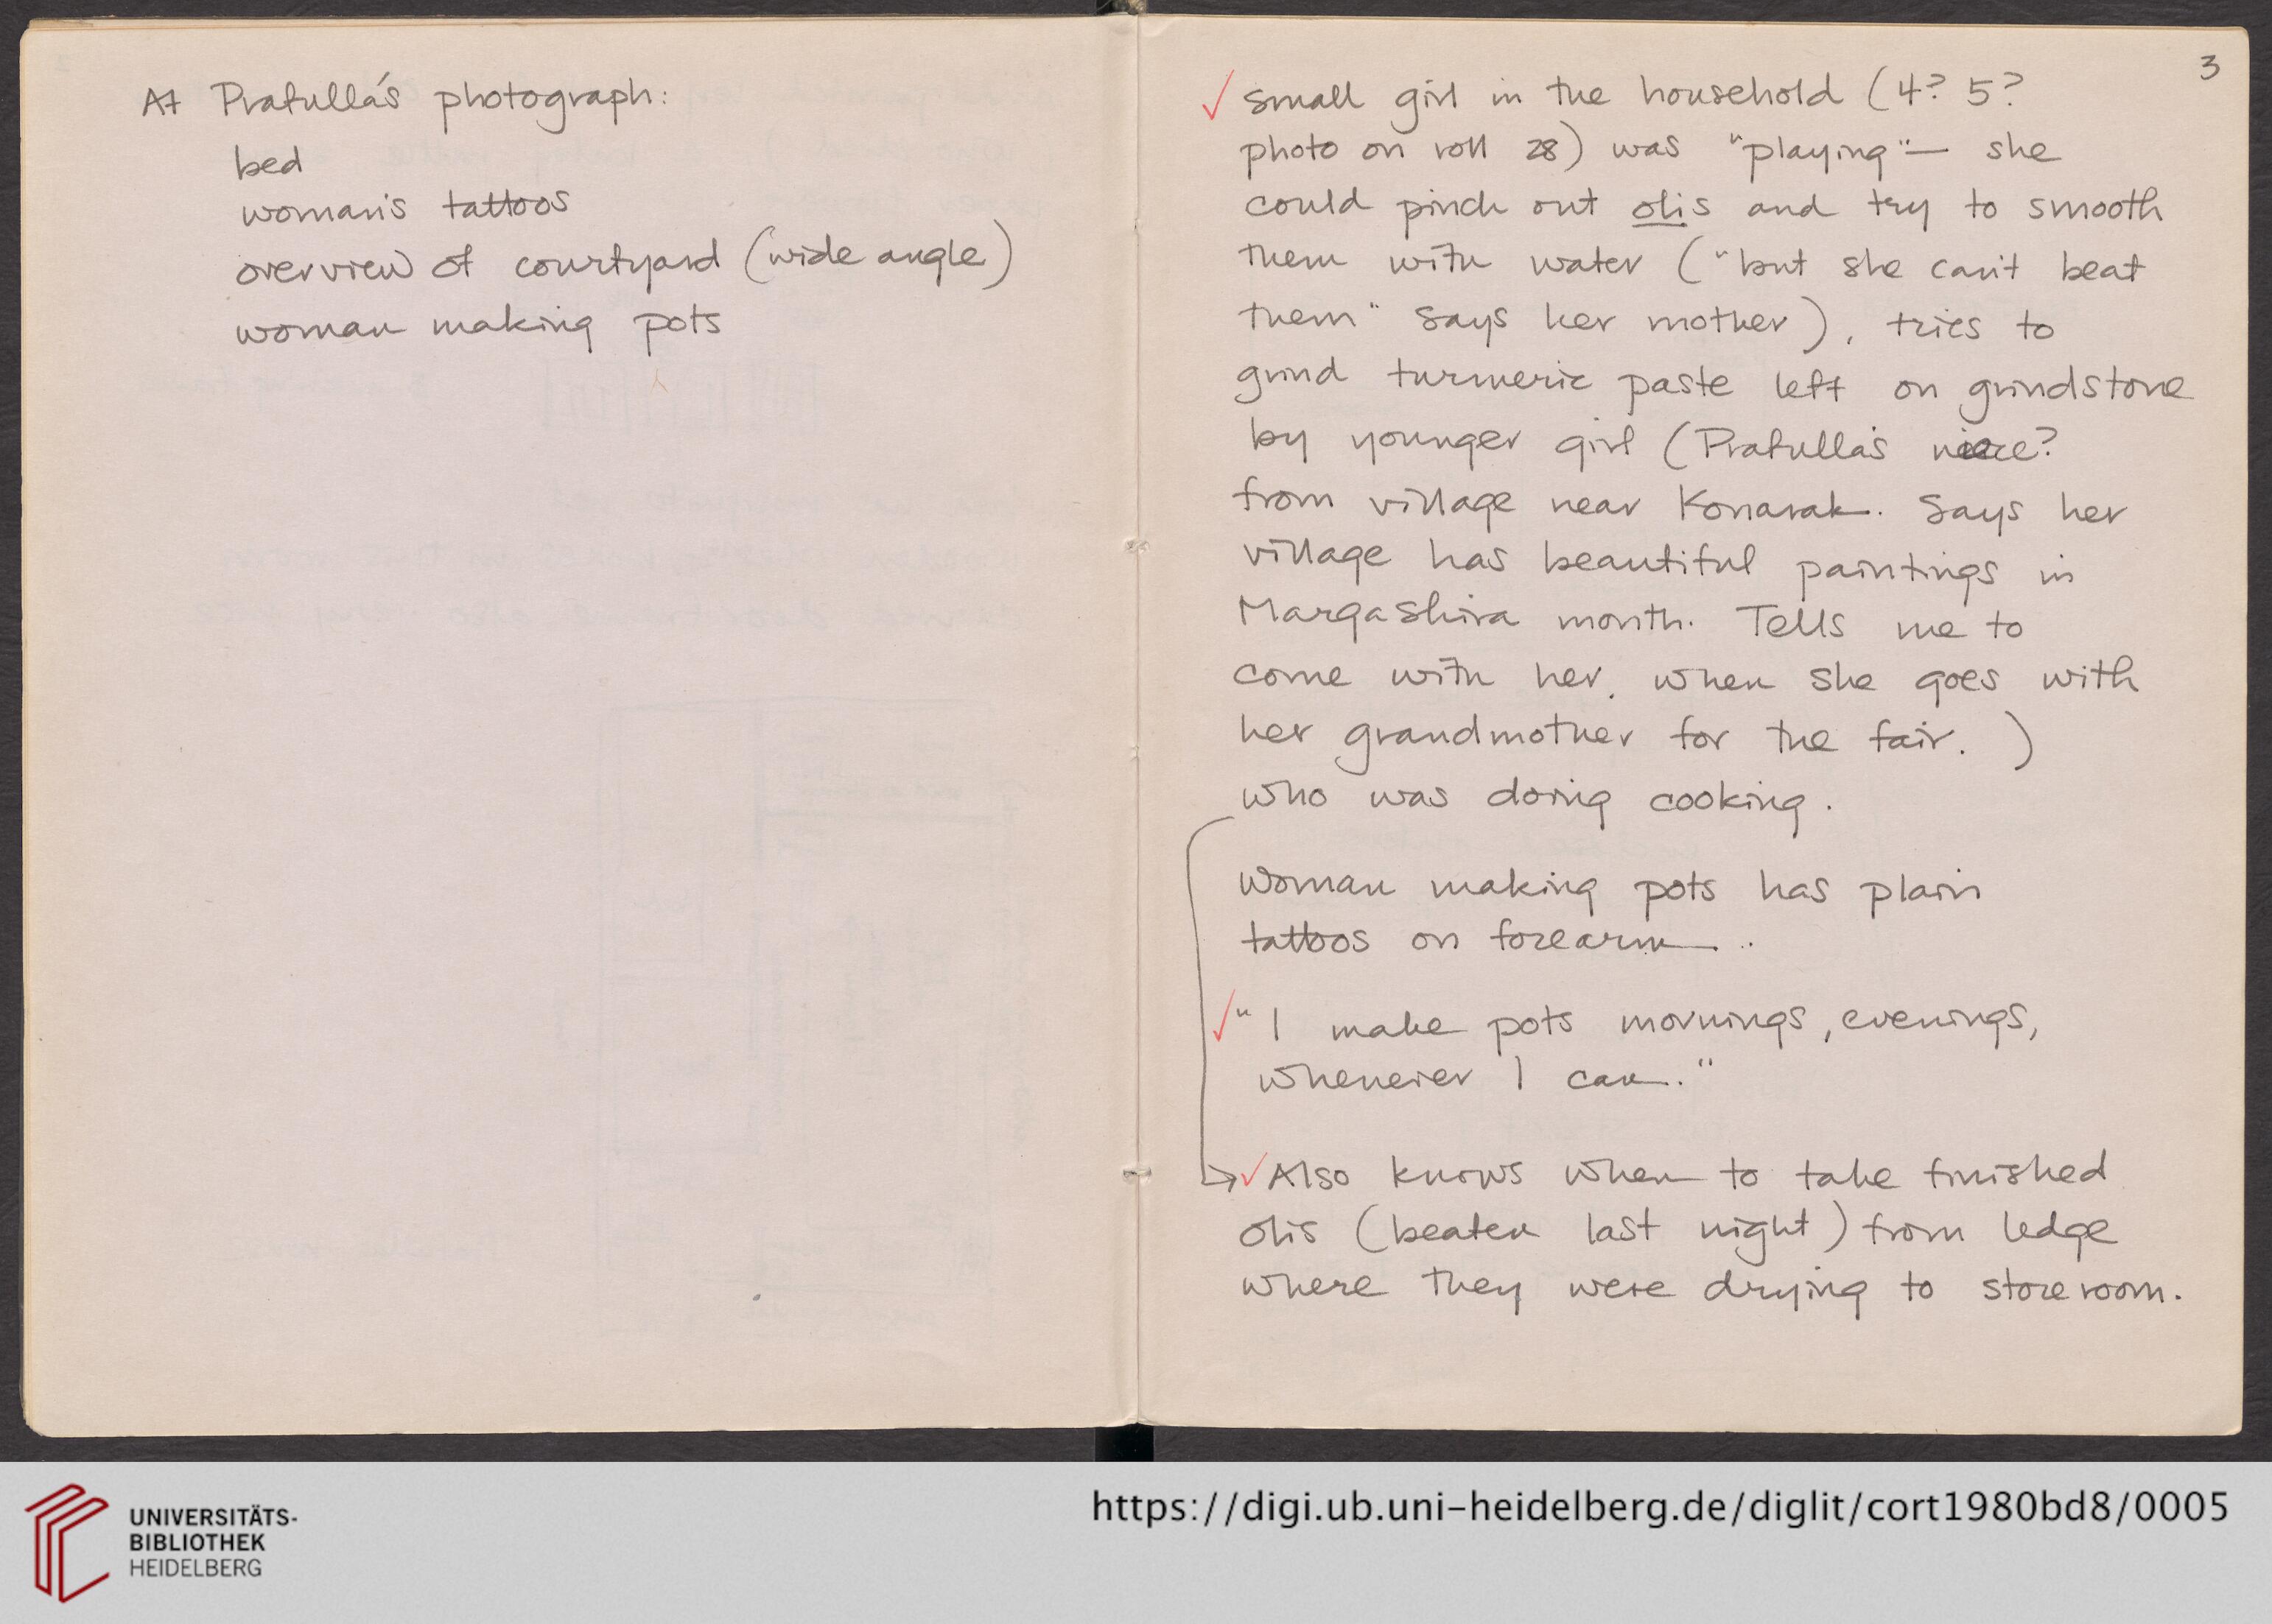 At Prafulla's photograph:
bed
woman's tattoos
overview of courtyard (wide angle)
woman making pots
3
✓ small girl in the household (4? 5?
photo on roll 28) was "playing" — she
could pinch out olis and try to smooth
them with water ("but she can't beat
them" says her mother), tries to
grind turmeric paste left on grindstone
by younger girl (Prafulla's niece?
from village near Konarak. Says her
village has beautiful paintings in
Margashira month. Tells me to
come with her, when she goes with
her grandmother for the fair. )
who was doing cooking.
woman making pots has plain
tattoos on forearm..
✓ "I make pots mornings, evenings,
whenever I can."
→ ✓ Also knows when to take finished
olis (beaten last night) from ledge
where they were drying to storeroom.
UNIVERSITÄTS-
BIBLIOTHEK
HEIDELBERG
https://digi.ub.uni-heidelberg.de/diglit/cort1980bd8/0005